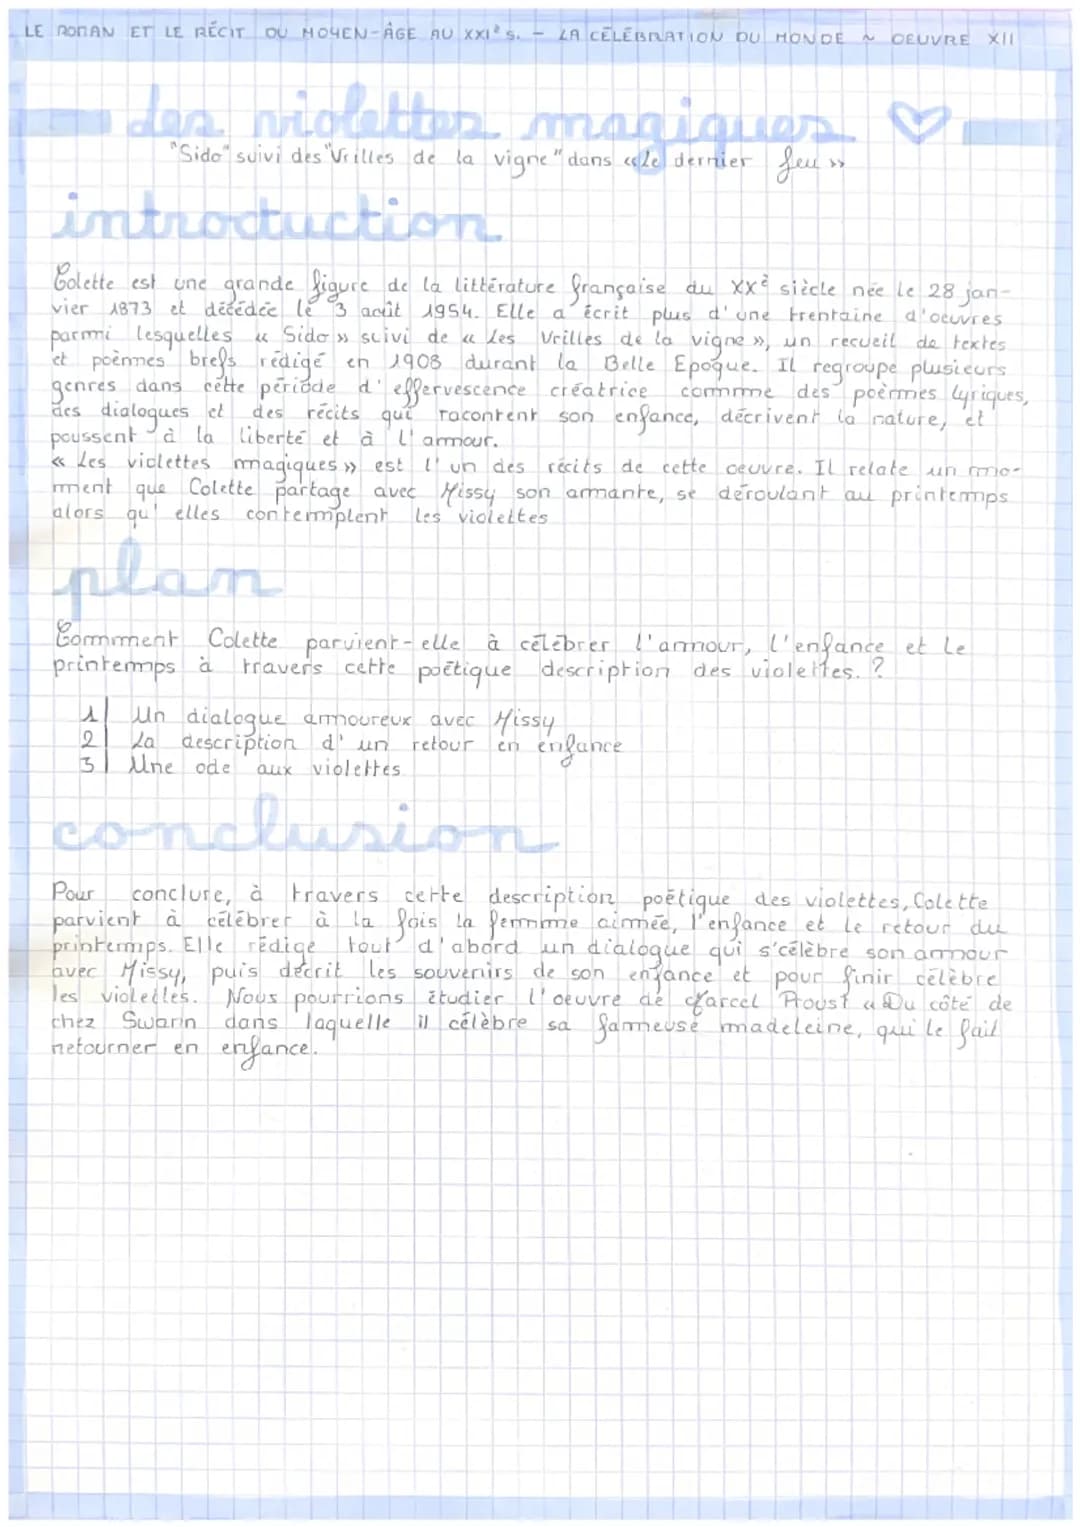 LE ROMAN ET LE RÉCIT DU MOYEN-ÂGE AU XXIᵉ S. - LA CÉLÉBRATION DU MONDE ~ OEUVRE XII
des violettes magiques ♡
"Sido" suivi des "Vrilles de la vigne" dans «le dernier feu»
introduction
Colette est une grande figure de la littérature française du XXᵉ siècle née le 28 jan-
vier 1873 et décédée le 3 août 1954. Elle a écrit plus d'une trentaine d'oeuvres
parmi lesquelles « Sido » suivi de « Les Vrilles de la vigne », un recueil de textes
et poèmes brefs rédigé en 1908 durant la Belle Epoque. Il regroupe plusieurs
genres dans cette période d'effervescence créatrice comme des poèmes lyriques,
des dialogues et des récits qui racontent son enfance, décrivent la nature, et
poussent à la liberté et à l'amour.
« Les violettes magiques » est l'un des récits de cette oeuvre. Il relate un mo-
ment que Colette partage avec Missy son amante, se déroulant au printemps
alors qu'elles contemplent les violettes
plan
Comment Colette parvient-elle à célébrer l'amour, l'enfance et le
printemps à travers cette poétique description des violettes. ?
1| Un dialogue amoureux avec Missy
2| La description d'un retour en enfance
3| Une ode aux violettes
conclusion
Pour conclure, à travers cette description poétique des violettes, Colette
parvient à célébrer à la fois la femme aimée, l'enfance et le retour du
printemps. Elle rédige tout d'abord un dialogue qui s'célèbre son amour
avec Missy, puis décrit les souvenirs de son enfance et pour finir célèbre
les violettes. Nous pourrions étudier l'oeuvre de Marcel Proust « Du côté de
chez Swann dans laquelle il célèbre sa fameuse madeleine, qui le fait
retourner en enfance.